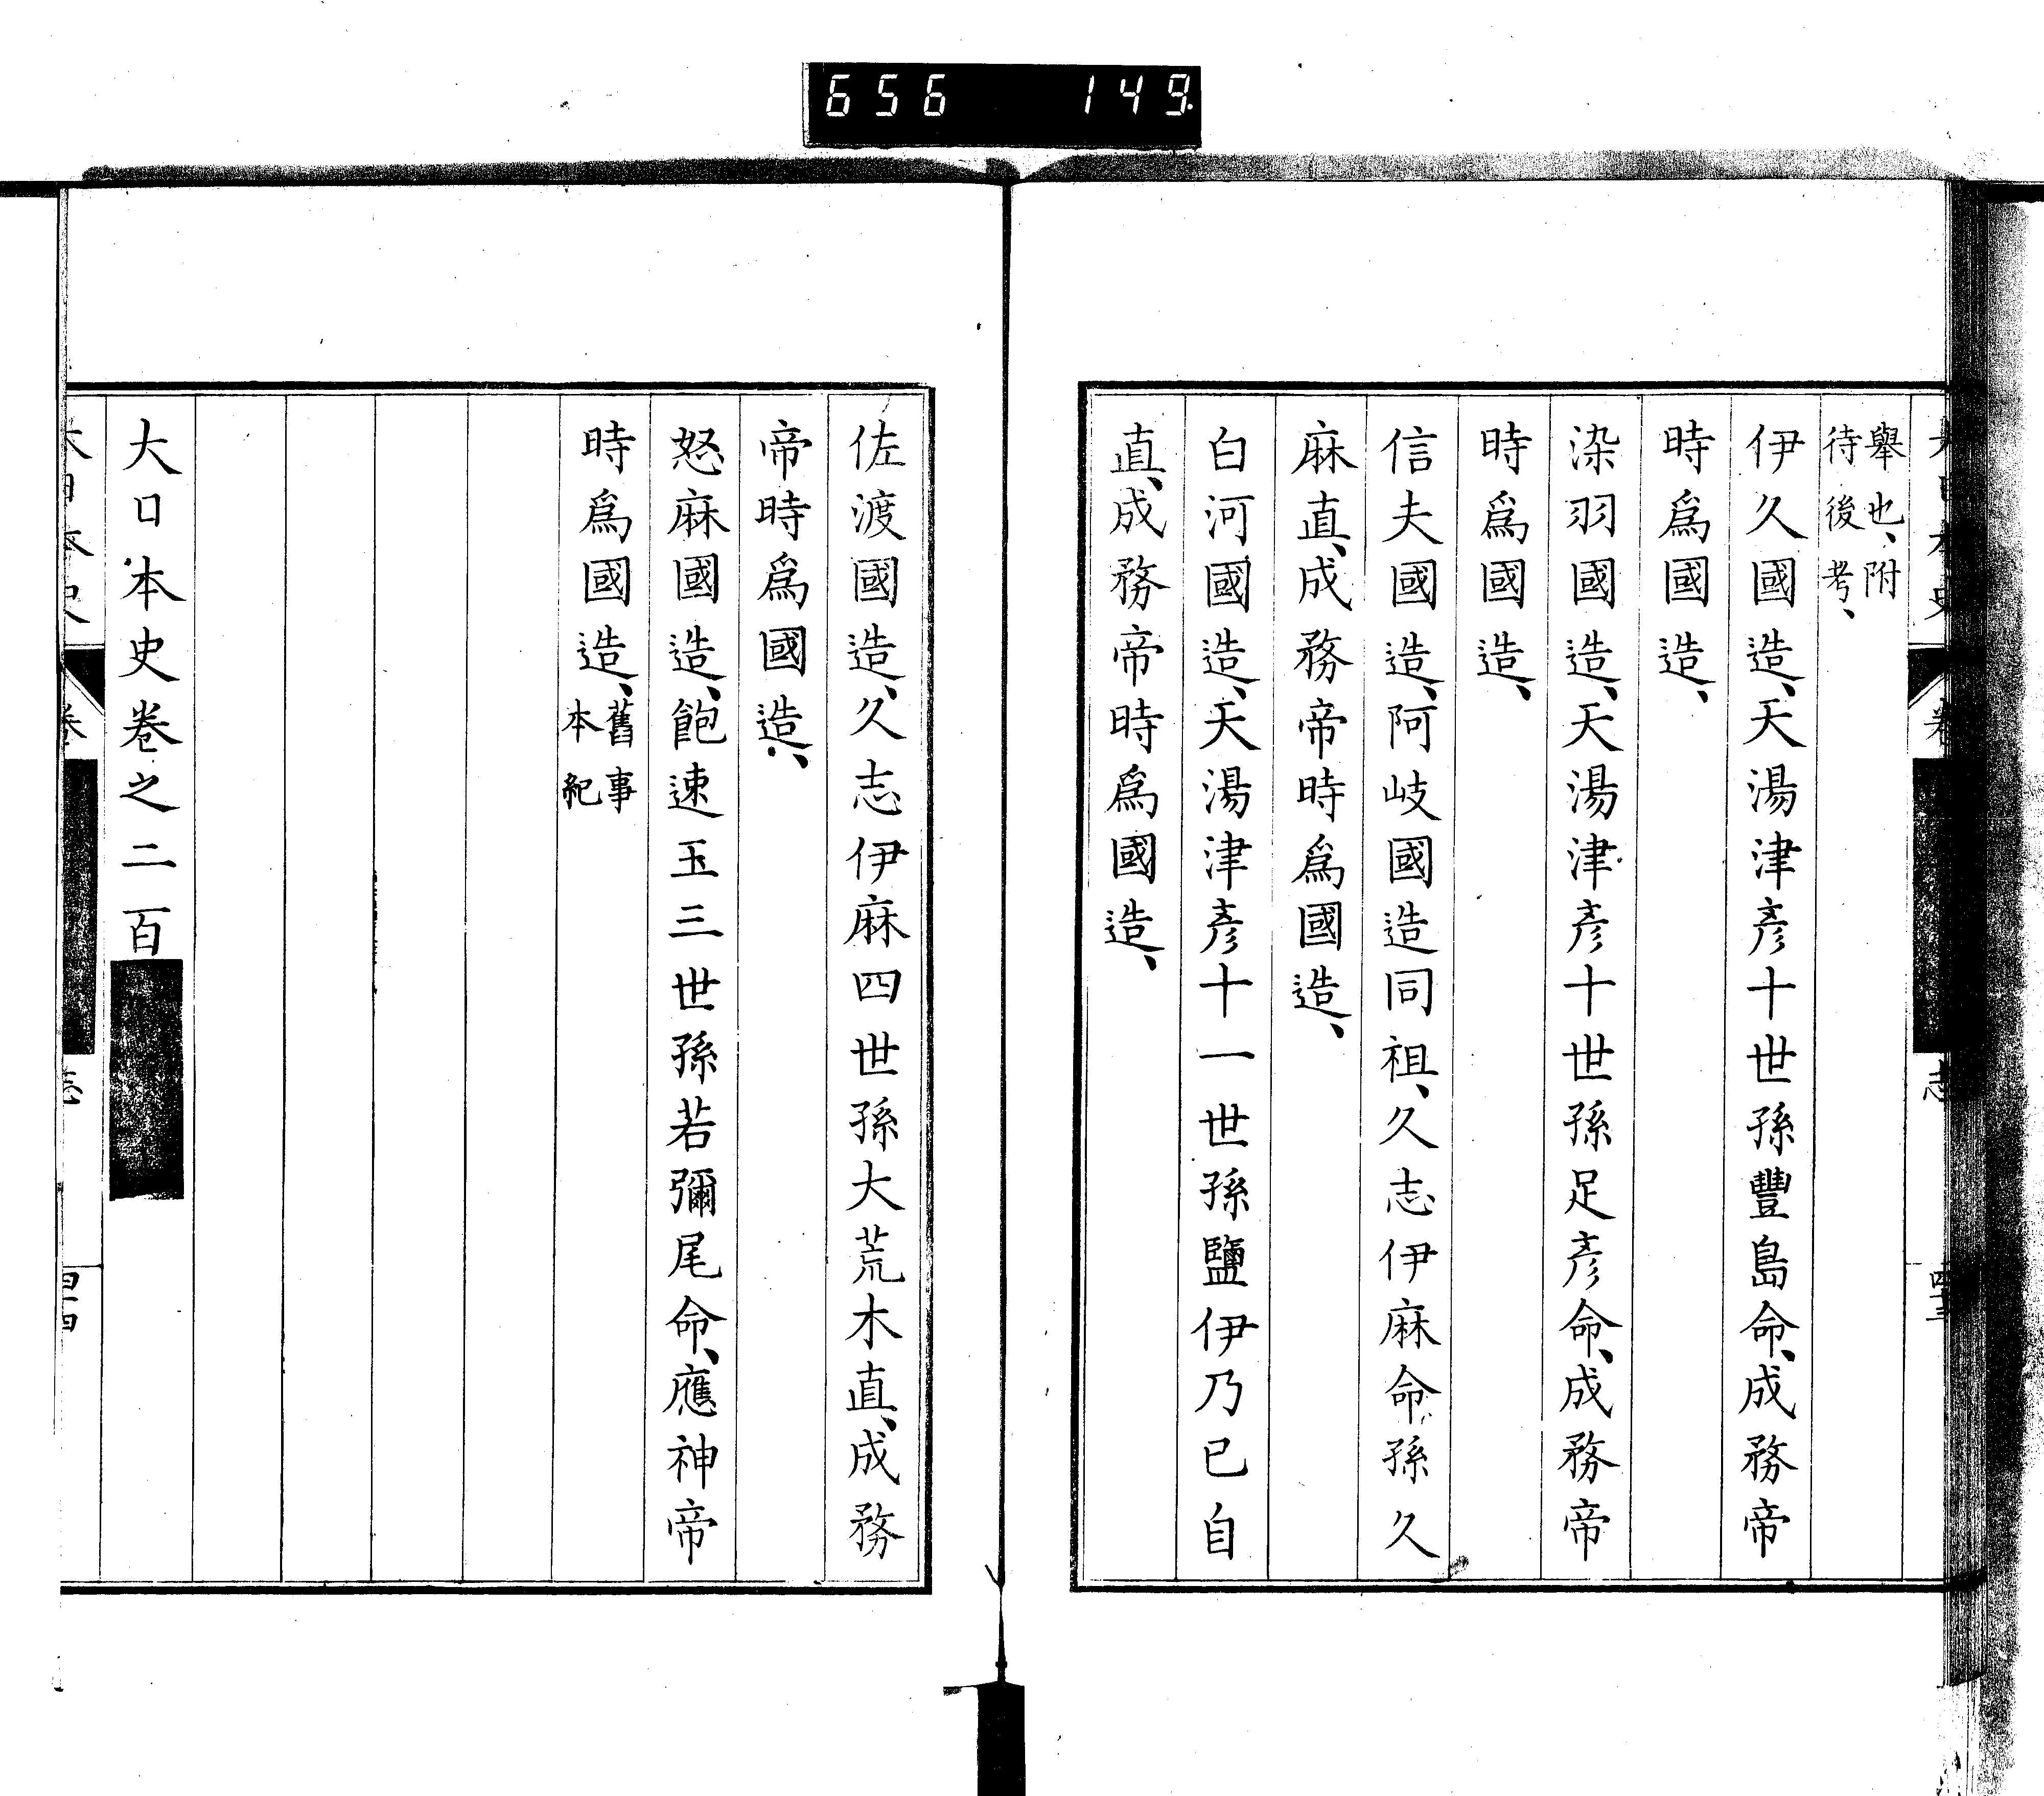 656 149
舉也、附
待後考、
伊久國造、天湯津彥十世孫豐島命、成務帝
時爲國造、
染羽國造、天湯津彥十世孫足彥命、成務帝
時爲國造、
信夫國造、阿岐國造同祖、久志伊麻命孫久
麻直、成務帝時爲國造、
白河國造、天湯津彥十一世孫鹽伊乃已自
直、成務帝時爲國造、
佐渡國造、久志伊麻四世孫大荒木直、成務
帝時爲國造、
怒麻國造、飽速玉三世孫若彌尾命、應神帝
時爲國造、
舊事
本紀
大日本史卷之二百